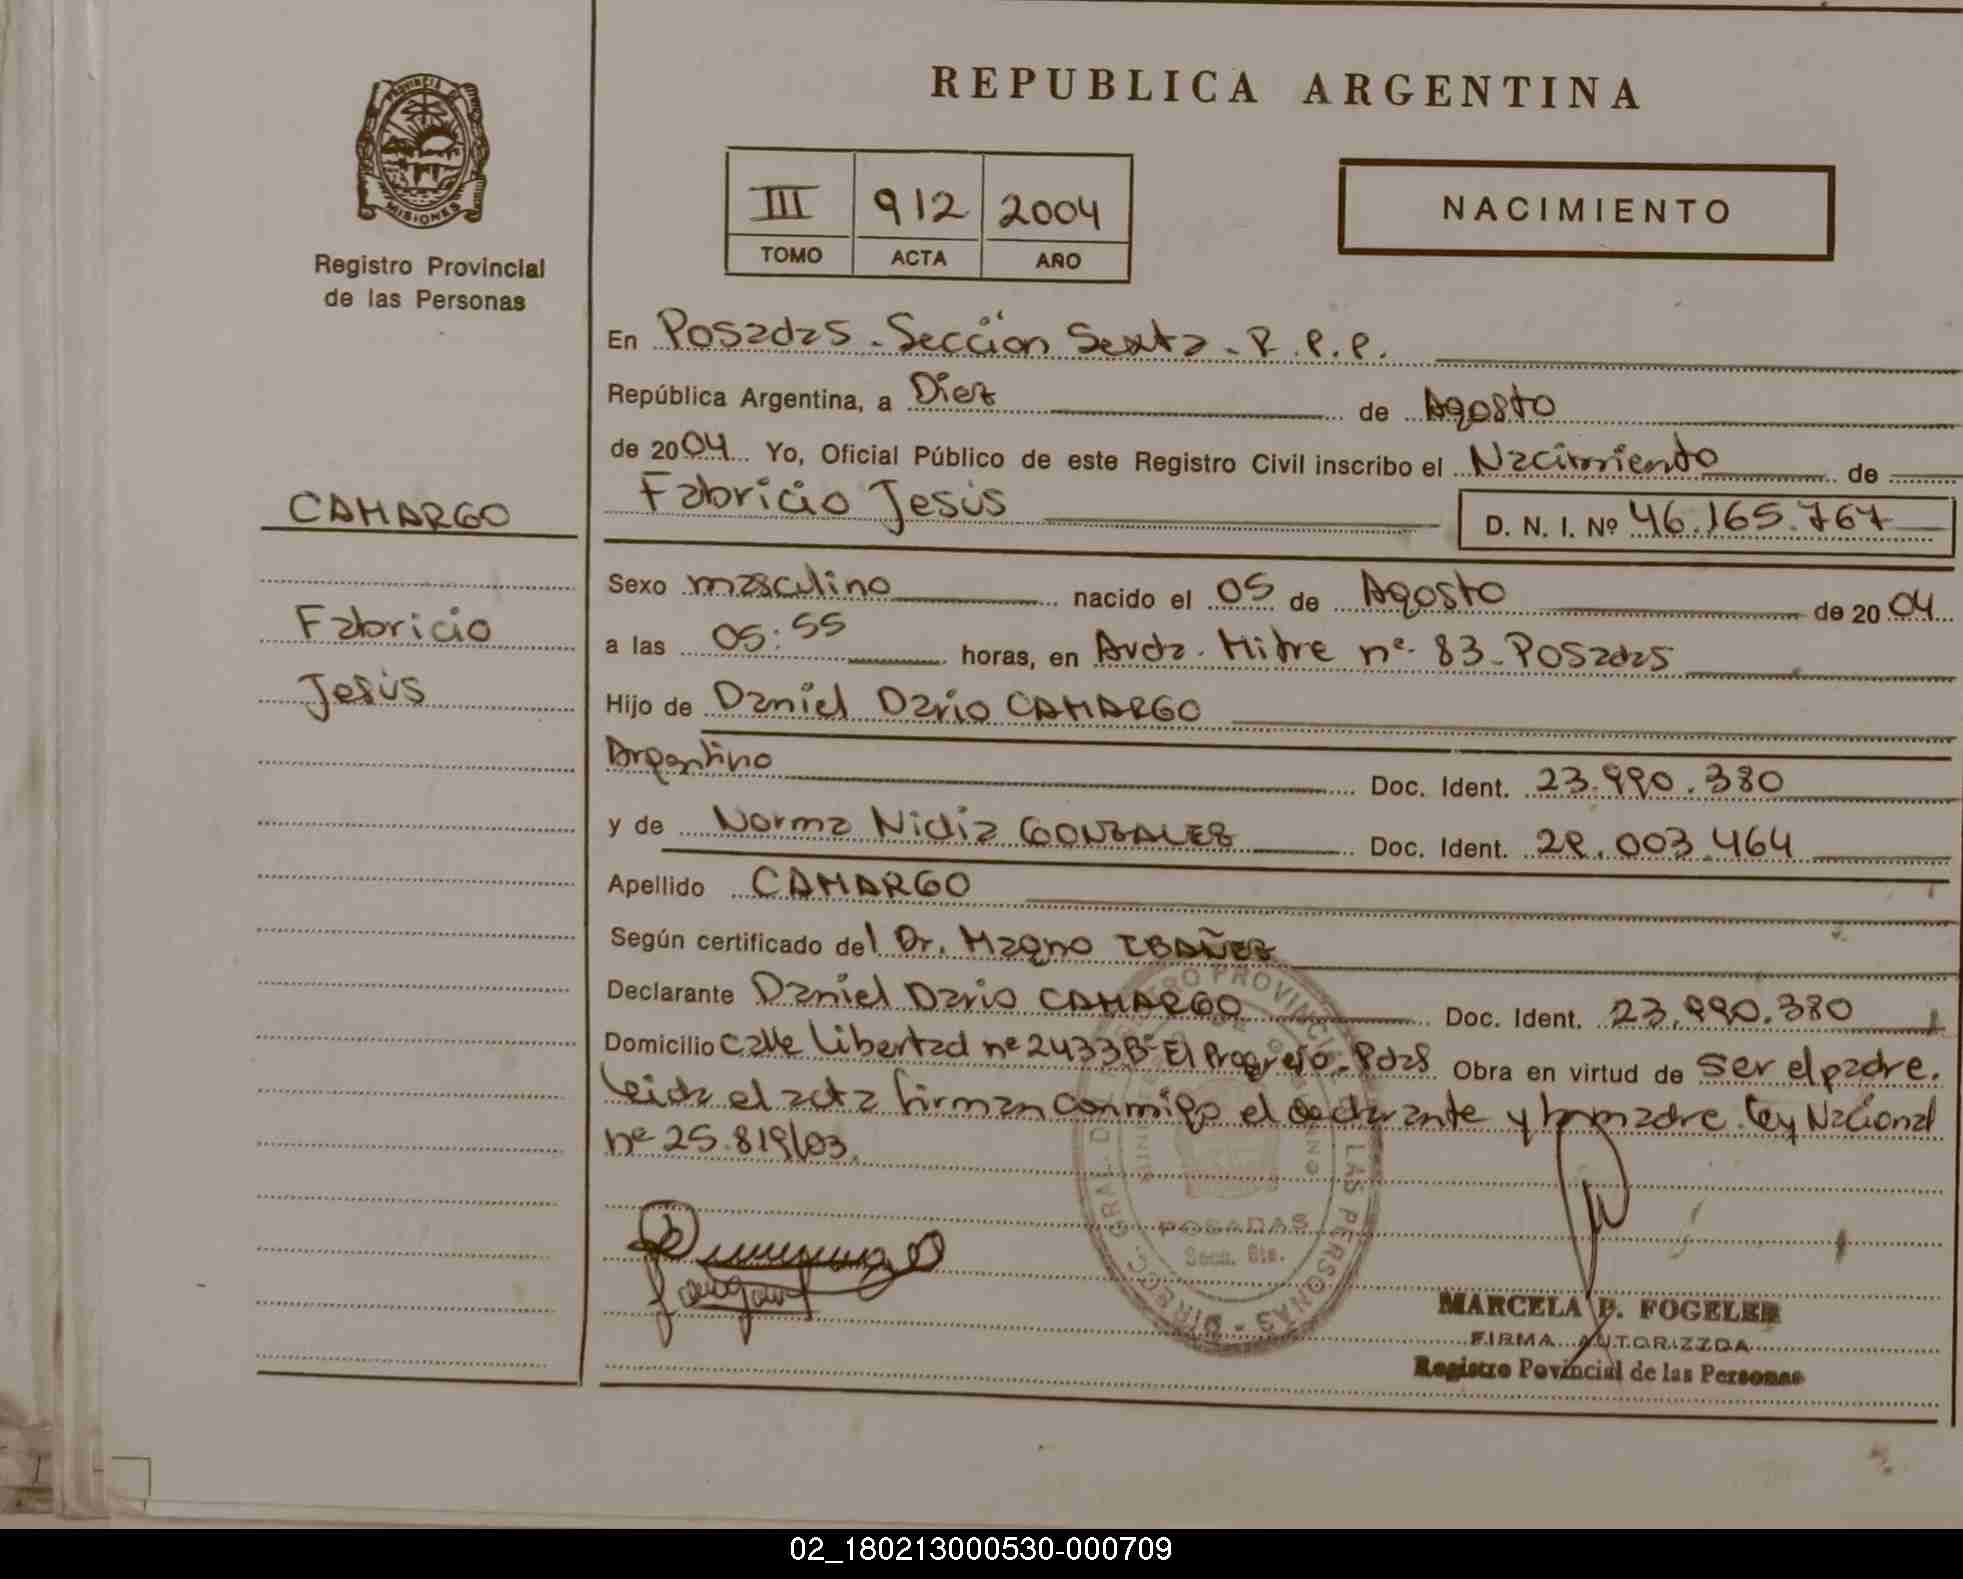 PROVINCIA DE
MISIONES
Registro Provincial
de las Personas
CAMARGO
Fabricio
Jesús
REPUBLICA ARGENTINA
III 912 2004
TOMO ACTA AÑO
NACIMIENTO
En Posadas - Sección Sexta - R.P.P.
República Argentina, a Diez de Agosto
de 2004 Yo, Oficial Público de este Registro Civil inscribo el Nacimiento de
Fabricio Jesús D. N. I. Nº 46.165.767
Sexo masculino nacido el 05 de Agosto de 2004
a las 05:55 horas, en Avda. Mitre nº 83 - Posadas
Hijo de Daniel Dario CAMARGO
Argentino Doc. Ident. 23.990.380
y de Norma Nidia GONZALEZ Doc. Ident. 28.003.464
Apellido CAMARGO
Según certificado del Dr. Magno IBAÑEZ
Declarante Daniel Dario CAMARGO Doc. Ident. 23.990.380
Domicilio calle Libertad nº 2433 Bº El Progreso - Pdas Obra en virtud de ser el padre.
Leida el acta firman conmigo el declarante y la madre. Ley Nacional
nº 25.819/03.
DIRECC. GRAL. DEL REGISTRO PROVINCIAL DE LAS PERSONAS
POSADAS
Secc. 6ta.
MARCELA B. FOGELER
FIRMA AUTORIZZDA
Registro Povincial de las Personas
02_180213000530-000709